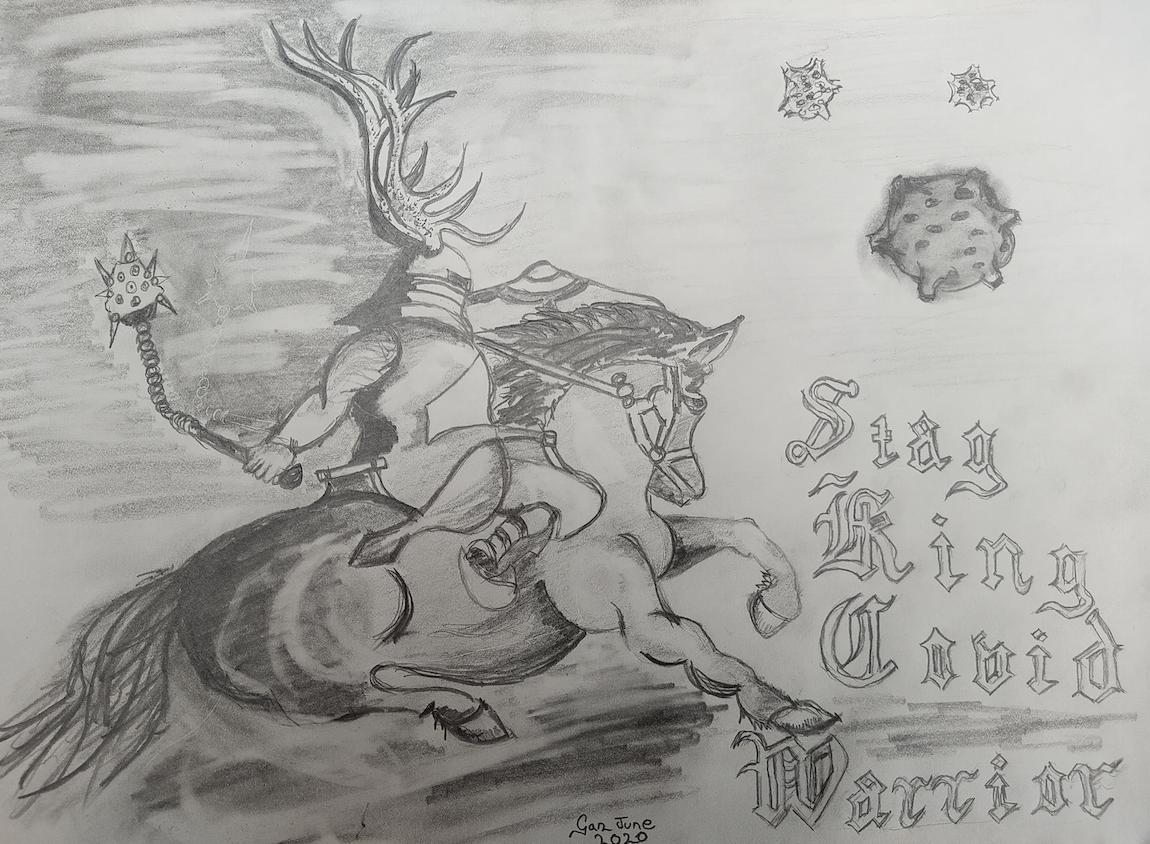 Stag
King
Covid
Warrior
Gaz June
2020